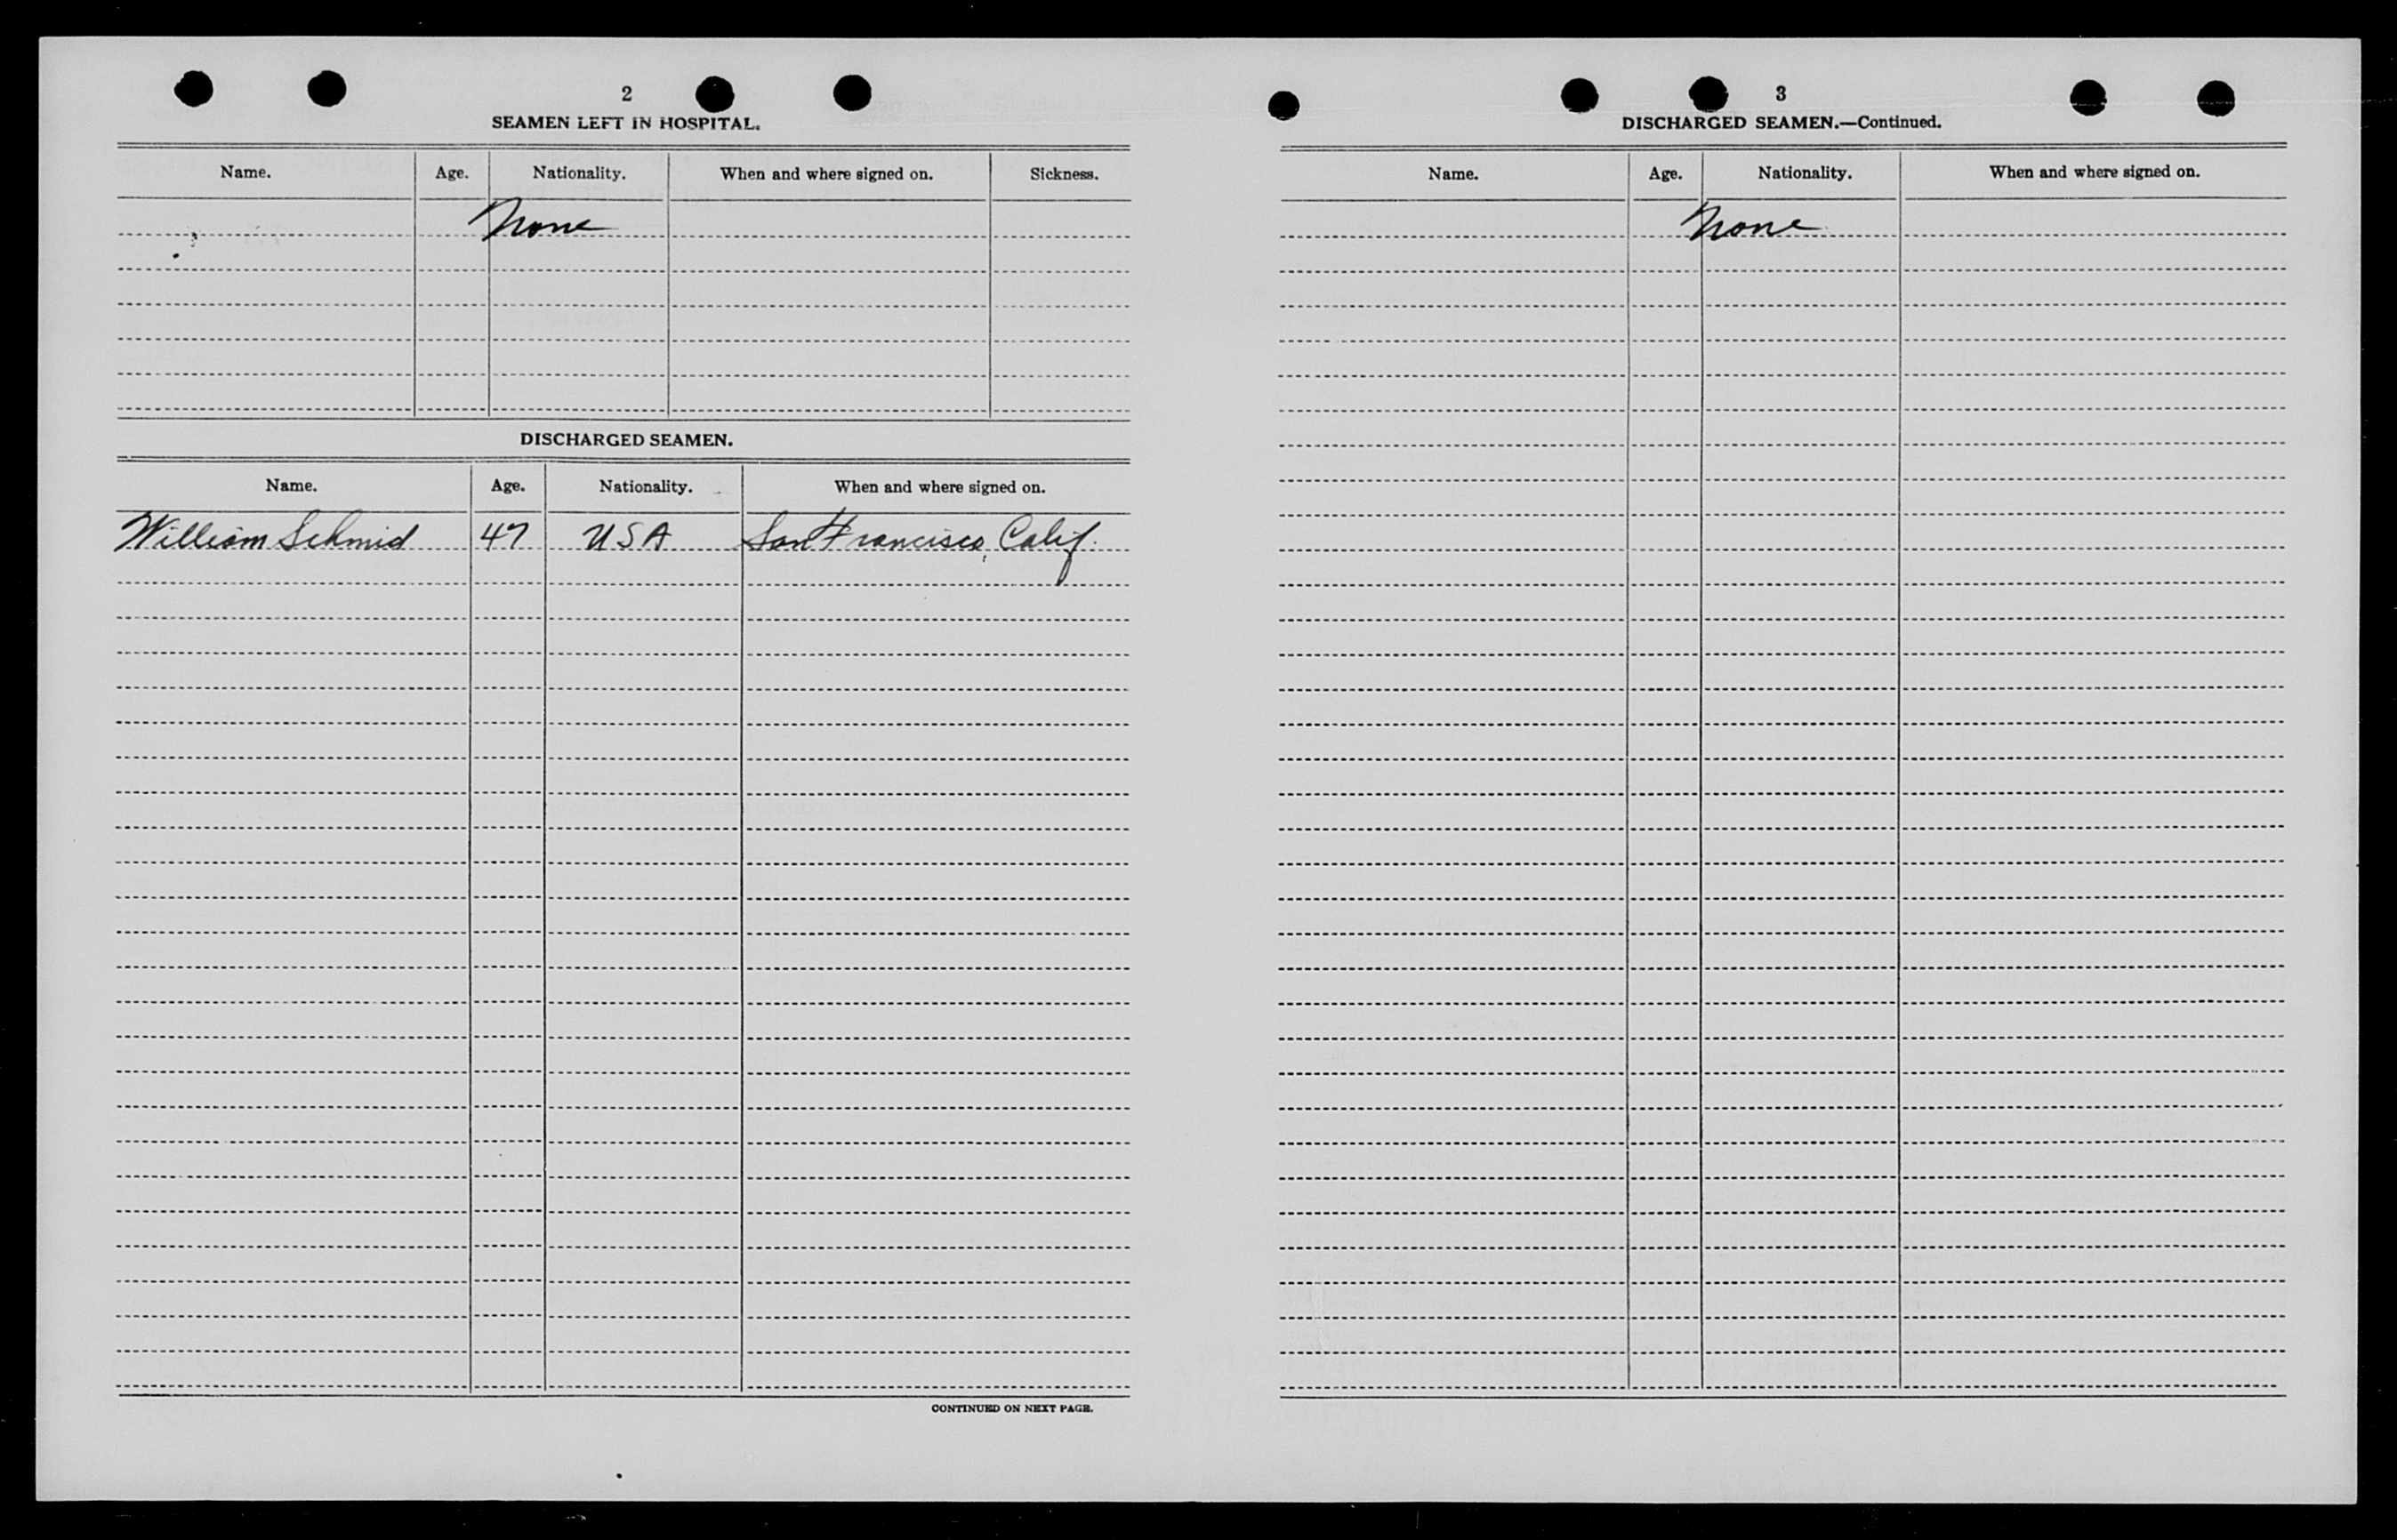 2
SEAMEN LEFT IN HOSPITAL.
Name. Age. Nationality. When and where signed on. Sickness.
None
DISCHARGED SEAMEN.
Name. Age. Nationality. When and where signed on.
William Schmid 47 USA San Francisco, Calif.
CONTINUED ON NEXT PAGE.
3
DISCHARGED SEAMEN.—Continued.
Name. Age. Nationality. When and where signed on.
None